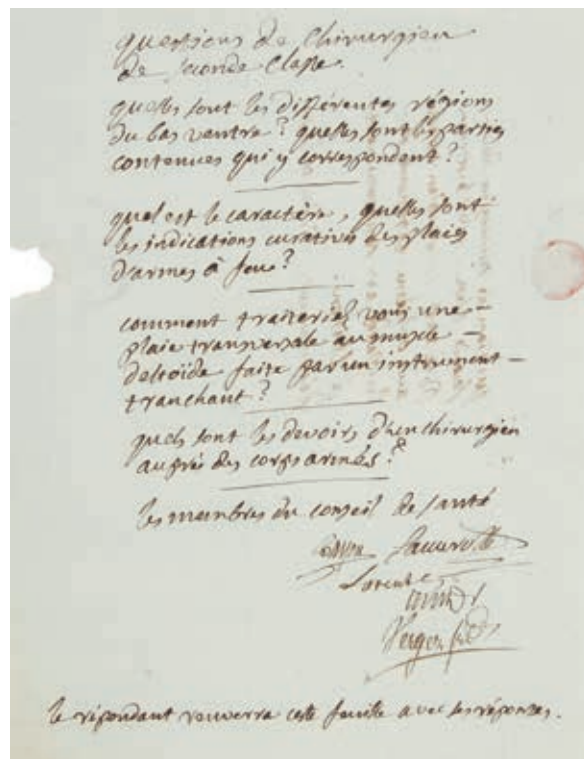 questions de chirurgien
de seconde classe.
quelles sont les différentes régions
du bas ventre ? quelles sont les parties
contenues qui y correspondent ?
quel est le caractère, quelles sont
les indications curatives des plaies
d'armes à feu ?
comment traiteriez vous une
plaie transversale au muscle
deltoïde faite par un instrument
tranchant ?
quels sont les devoirs d'un chirurgien
auprès des corps armés ?
les membres du conseil de santé
Lorentz
le répondant renverra cette feuille avec ses réponses.